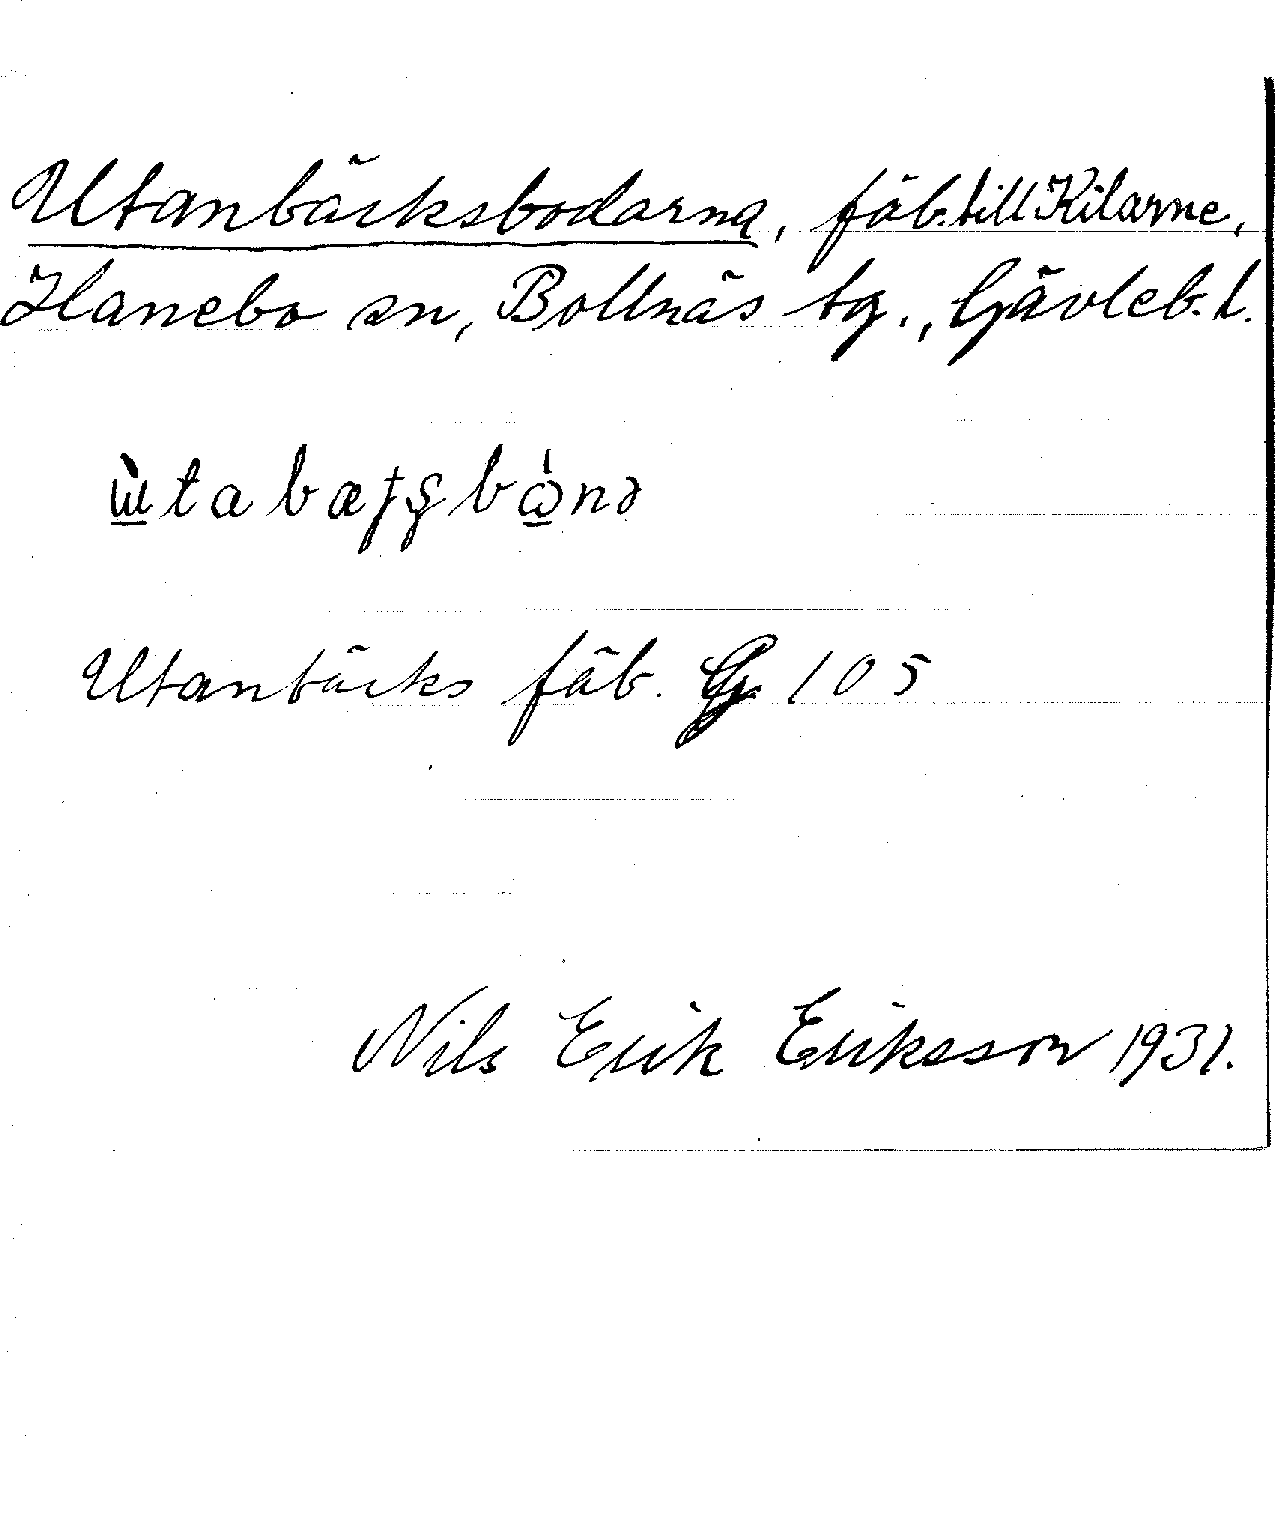 Utanbäcksbodarna, fäb. till Kilarne,
Hanebo sn, Bollnäs tg., Gävleb. l.
Utanbäcks fäb. 105
Nils Erik Eriksson 1931.